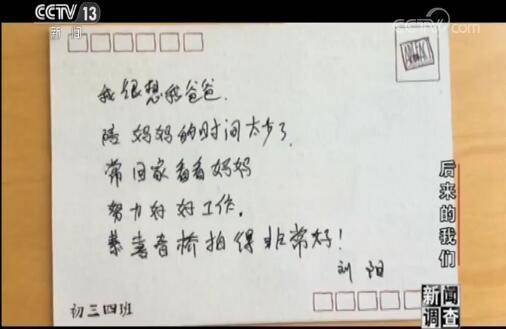 CCTV 13
新闻
CCTV.com
我很想我爸爸.
陪妈妈的时间太少了.
常回家看看妈妈
努力好好工作.
恭喜音桥拍得非常好!
刘阳
初三四班
后来的我们
新闻
调查